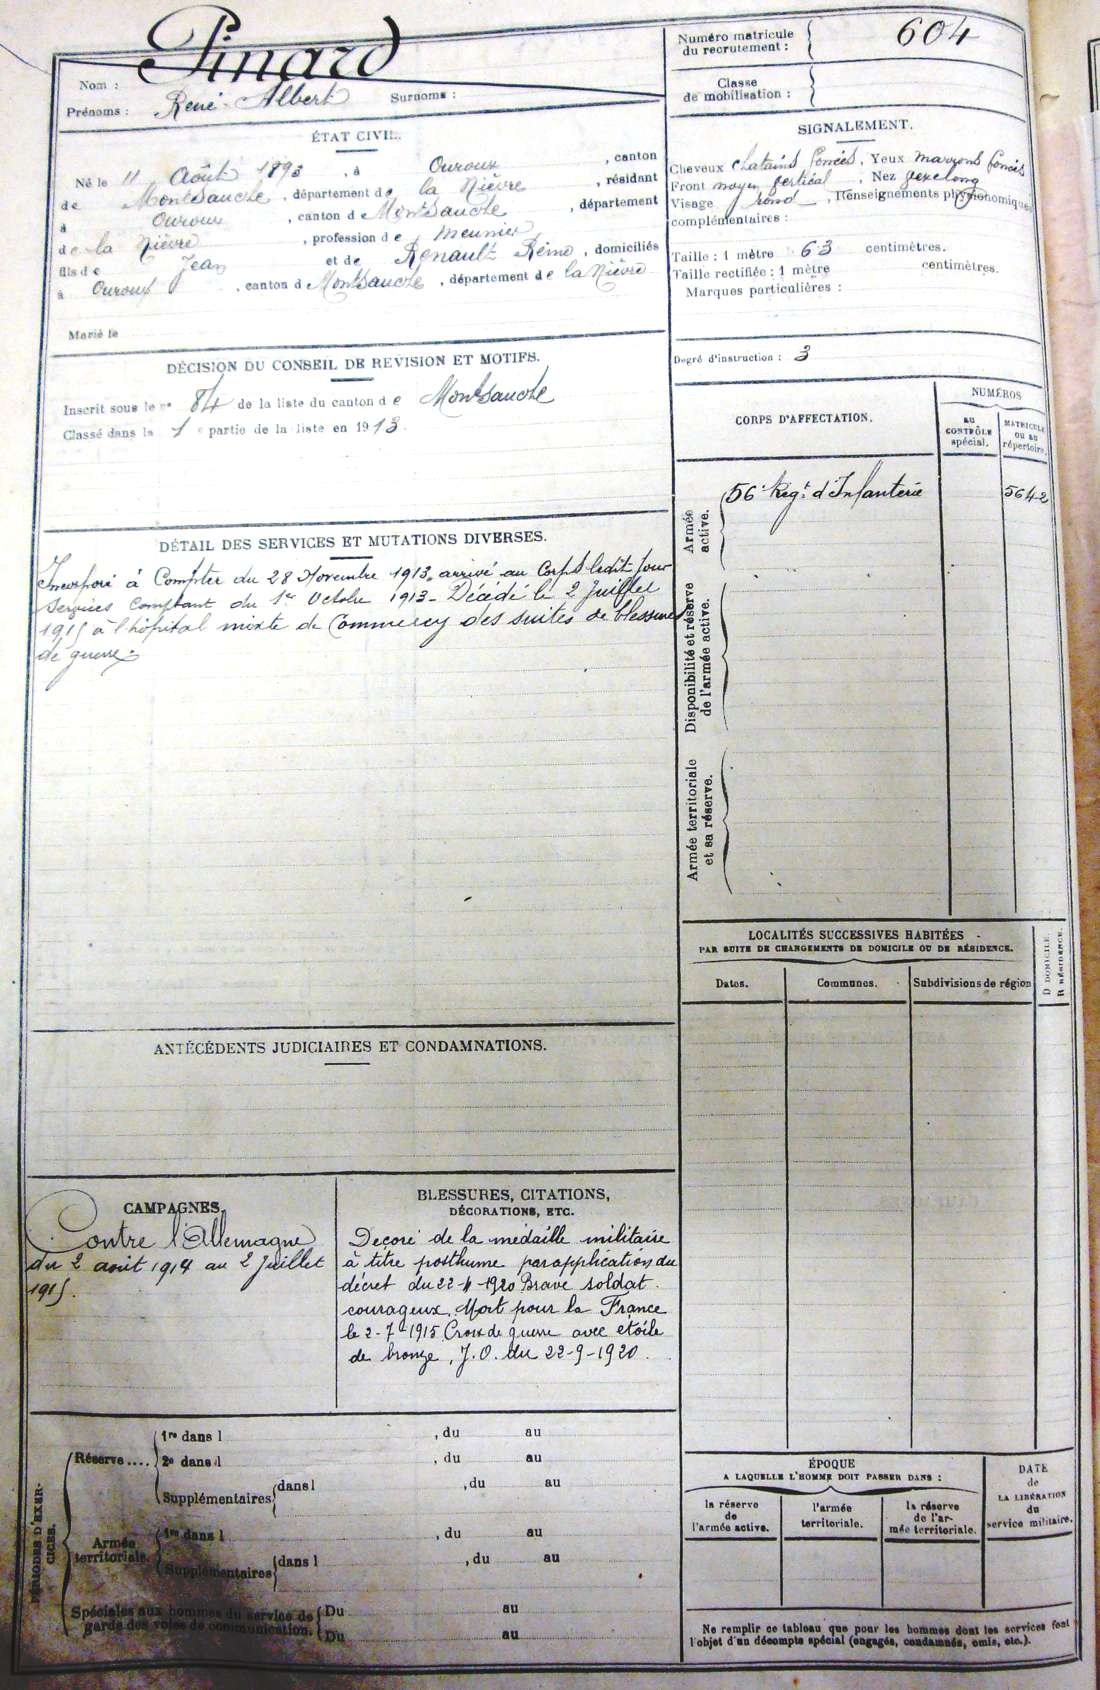 Pinard
Nom :
Prénoms : René Albert Surnoms :
Numéro matricule
du recrutement : 604
Classe
de mobilisation :
ÉTAT CIVIL.
Né le 11 Août 1893, à Ouroux, canton
de Montsauche, département de la Nièvre, résidant
à Ouroux, canton de Montsauche, département
de la Nièvre, profession de meunier
fils de Jean et de Renault Reine, domiciliés
à Ouroux, canton de Montsauche, département de la Nièvre
Marié le
SIGNALEMENT.
Cheveux chatains foncés, Yeux marrons foncés
Front moyen vertical, Nez
Visage rond, Renseignements physionomiques
complémentaires :
Taille : 1 mètre 63 centimètres.
Taille rectifiée : 1 mètre centimètres.
Marques particulières :
Degré d'instruction : 3
DÉCISION DU CONSEIL DE REVISION ET MOTIFS.
Inscrit sous le n° 84 de la liste du canton de Montsauche
Classé dans la 1e partie de la liste en 1913.
DÉTAIL DES SERVICES ET MUTATIONS DIVERSES.
Incorporé à Compter du 28 Novembre 1913, arrivé au Corps ledit jour
Services comptant du 1er Octobre 1913 - Décédé le 2 Juillet
1915 à l'hôpital mixte de Commercy des suites de blessures
de guerre.
CORPS D'AFFECTATION.
NUMÉROS
AU
CONTRÔLE
spécial.
MATRICULE
OU AU
répertoire.
Armée
active.
56e Régt d'Infanterie 5642
Disponibilité et réserve
de l'armée active.
Armée territoriale
et sa réserve.
LOCALITÉS SUCCESSIVES HABITÉES
PAR SUITE DE CHANGEMENTS DE DOMICILE OU DE RÉSIDENCE.
D DOMICILE.
R RÉSIDENCE.
Dates. Communes. Subdivisions de région
ANTÉCÉDENTS JUDICIAIRES ET CONDAMNATIONS.
CAMPAGNES.
Contre l'Allemagne
du 2 août 1914 au 2 Juillet
1915.
BLESSURES, CITATIONS,
DÉCORATIONS, ETC.
Décoré de la médaille militaire
à titre posthume par application du
décret du 22-4-1920 Brave soldat
courageux. Mort pour la France
le 2-7-1915 Croix de guerre avec étoile
de bronze, J.O. du 22-9-1920.
PÉRIODES D'EXER-
CICES.
Réserve ....
1re dans l , du au
2e dans l , du au
Supplémentaires dans l , du au
Armée
territoriale.
1re dans l , du au
Supplémentaires dans l , du au
Spéciales aux hommes du service de
garde des voies de communication.
Du au
Du au
ÉPOQUE
A LAQUELLE L'HOMME DOIT PASSER DANS :
la réserve
de
l'armée active.
l'armée
territoriale.
la réserve
de l'ar-
mée territoriale.
DATE
de
LA LIBÉRATION
du
service militaire.
Ne remplir ce tableau que pour les hommes dont les services font
l'objet d'un décompte spécial (engagés, condamnés, omis, etc.).